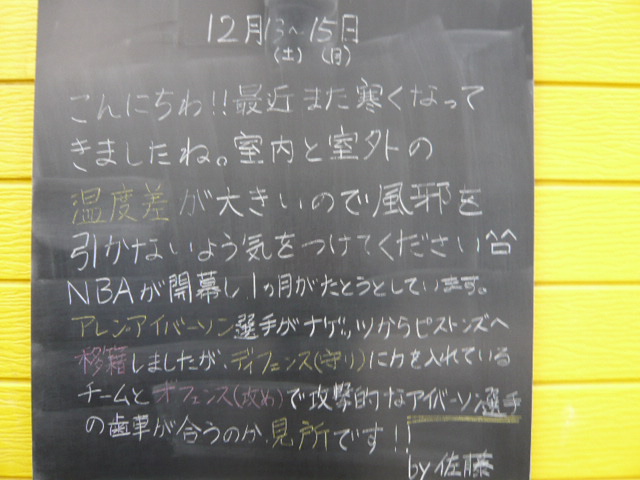 12月13~15日
(土) (月)
こんにちわ!!最近また寒くなって
きましたね。室内と室外の
温度差が大きいので風邪を
引かないよう気をつけてください^^
NBAが開幕し1ヵ月がたとうとしています。
アレン・アイバーソン選手がナゲッツからピストンズへ
移籍しましたが、ディフェンス(守り)に力を入れている
チームとオフェンス(攻め)で攻撃的なアイバーソン選手
の歯車が合うのか、見所です!!
by 佐藤